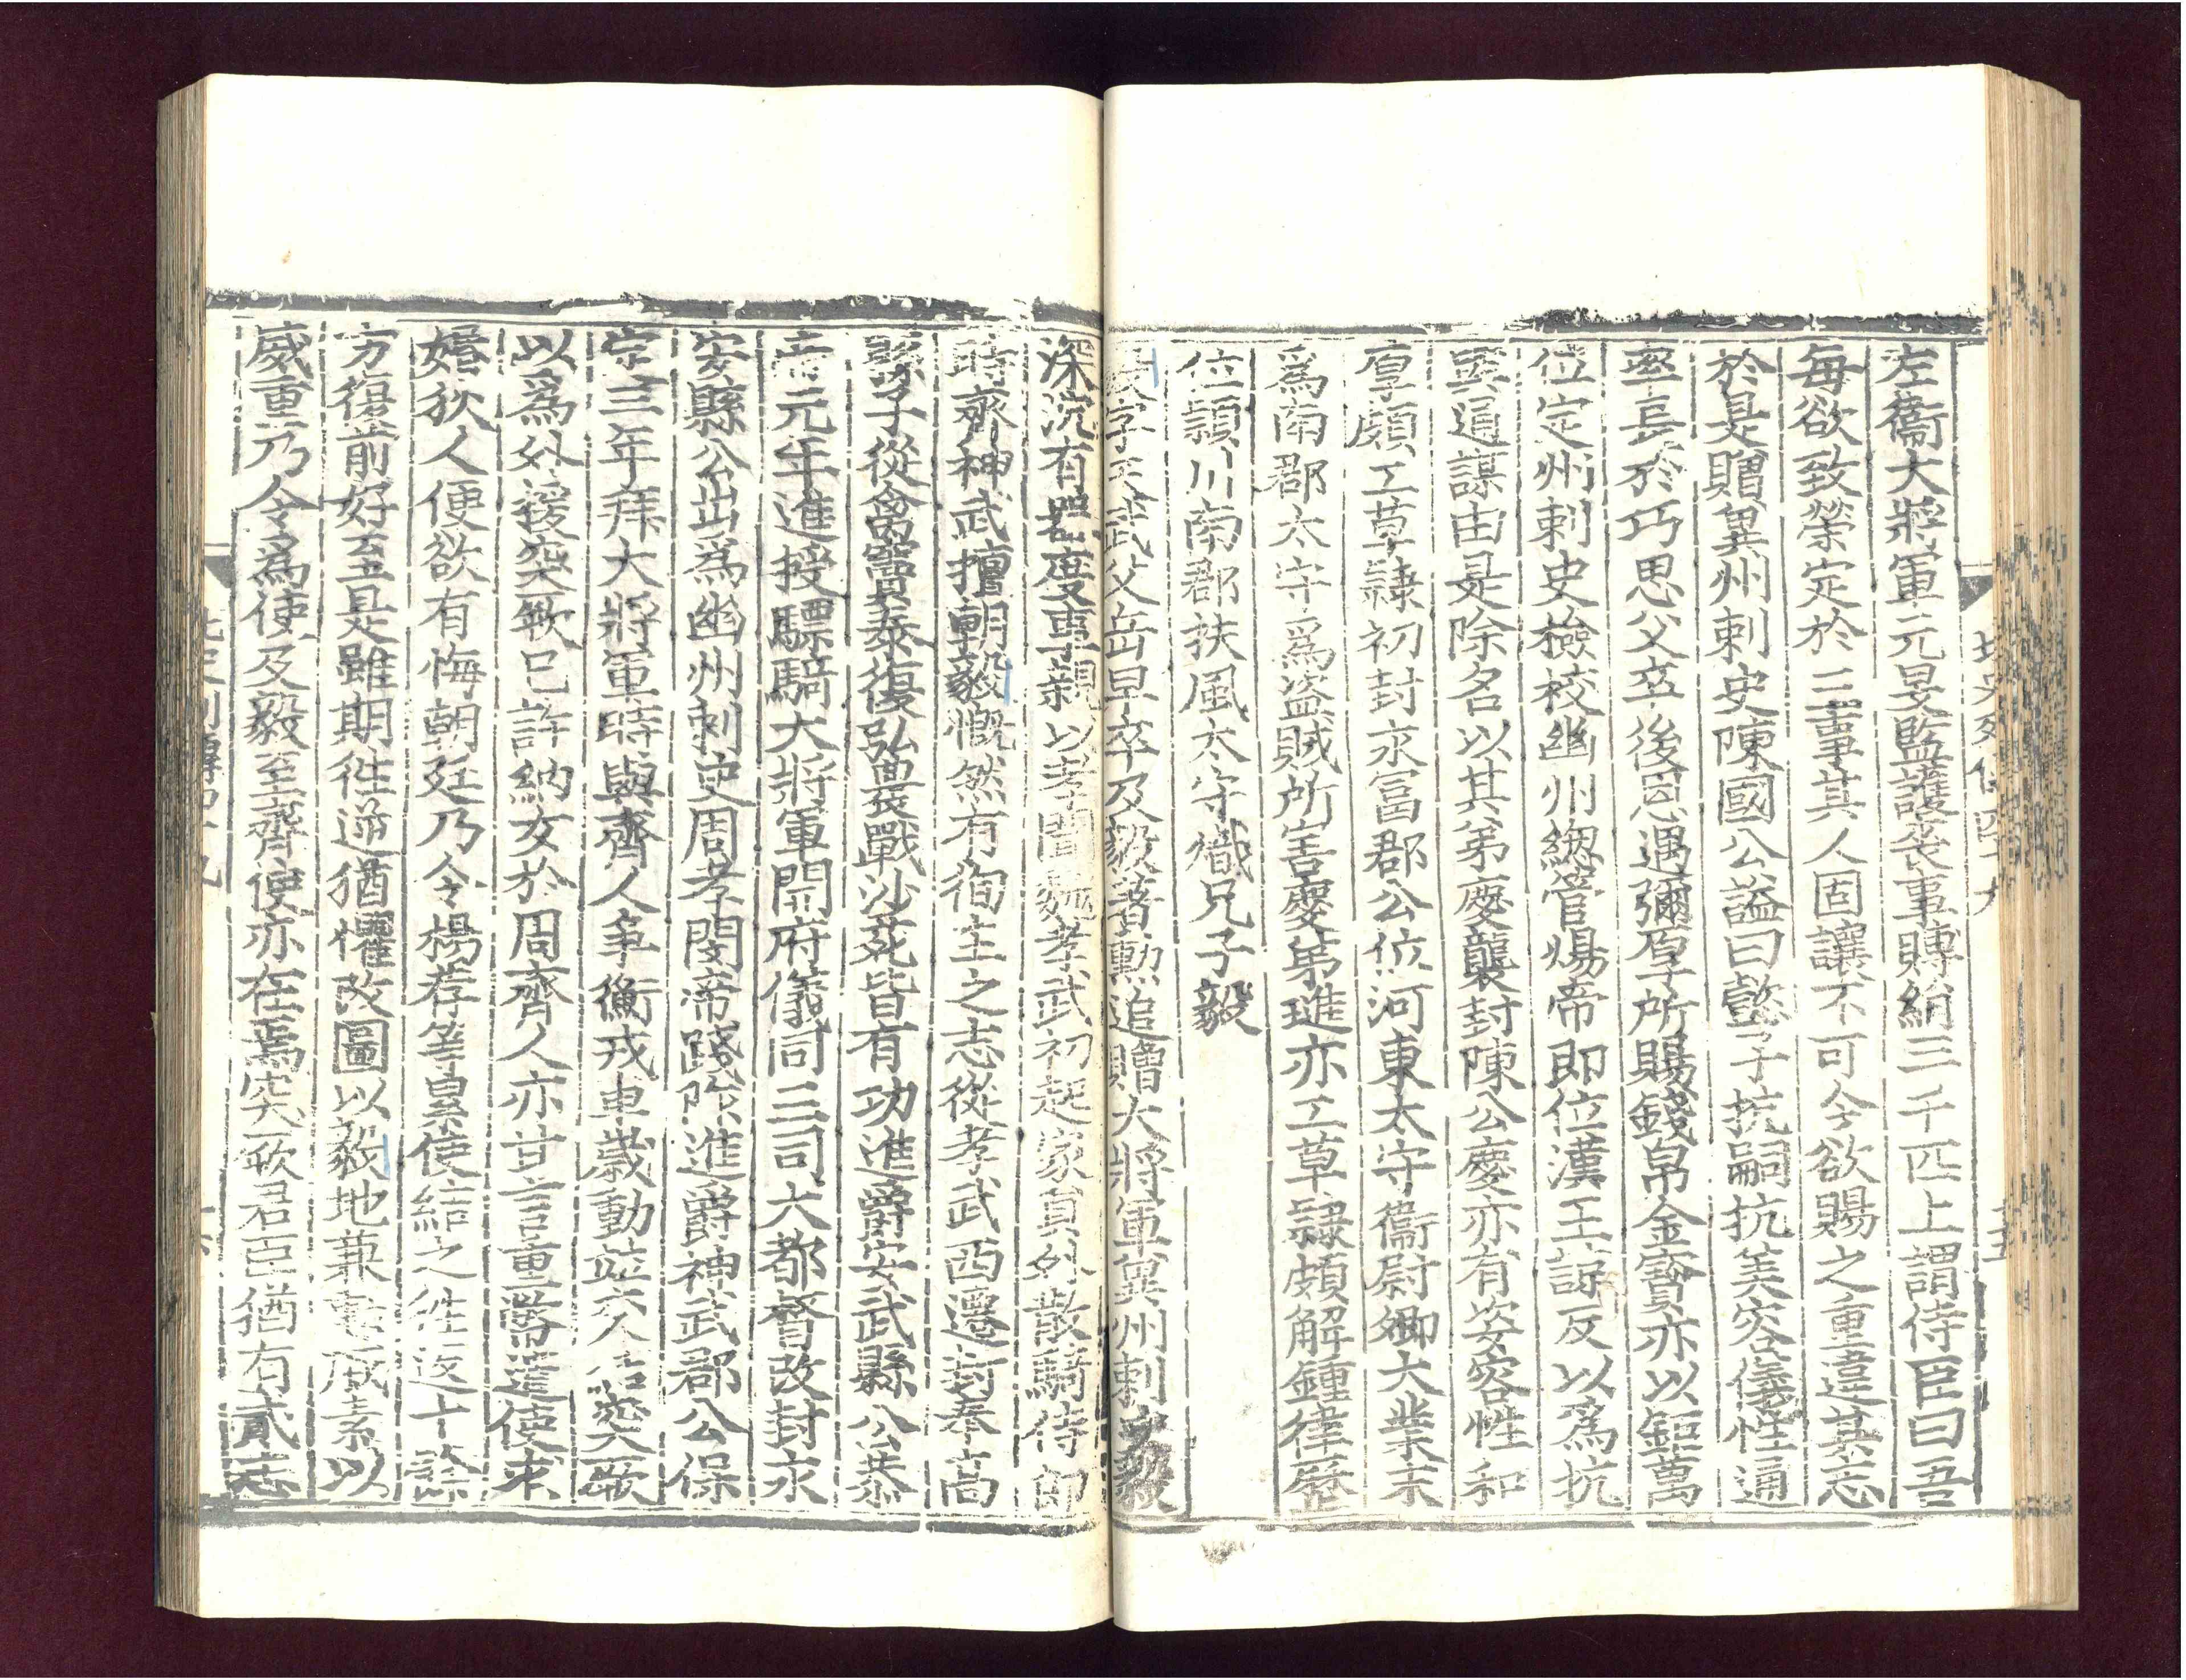 左衞大將軍元旻監護喪事賻絹三千匹上謂侍臣曰吾
每欲致榮定於三事其人固讓不可今欲賜之重違其志
於是贈冀州刺史陳國公謚曰懿子抗嗣抗美容儀性通
率長於巧思父卒後恩遇彌厚所賜錢帛金寶亦以鉅萬
位定州刺史檢校幽州緫管煬帝即位漢王諒反以爲抗
與通謀由是除名以其弟慶襲封陳公慶亦有姿容性和
厚頗工草隷初封永冨郡公位河東太守衞尉卿大業末
爲南郡太守爲盜賊所害慶弟璡亦工草隷頗解鍾律歷
位頴川南郡扶風太守熾兄子毅
毅字天武父岳早卒及毅著勲追贈大將軍冀州刺史毅
深沉有器度事親以孝聞魏孝武初起家員外散騎侍郎
時齊神武擅朝毅慨然有徇主之志從孝武西遷封奉高
縣子從禽竇泰復弘農戰沙苑皆有功進爵安武縣公恭
帝元年進授驃騎大將軍開府儀同三司大都督改封永
安縣公出爲幽州刺史周孝閔帝踐阼進爵神武郡公保
定三年拜大將軍時與齊人爭衡戎車歲動並交結突厥
以爲外援突厥已許納女於周齊人亦甘言重幣遣使求
婚狄人便欲有悔朝廷乃令楊荐等累使結之往返十餘
方復前好至是雖期往逆猶懼改圖以毅地兼勳戚素以
威重乃令爲使及毅至齊使亦在焉突厥君臣猶有貳志